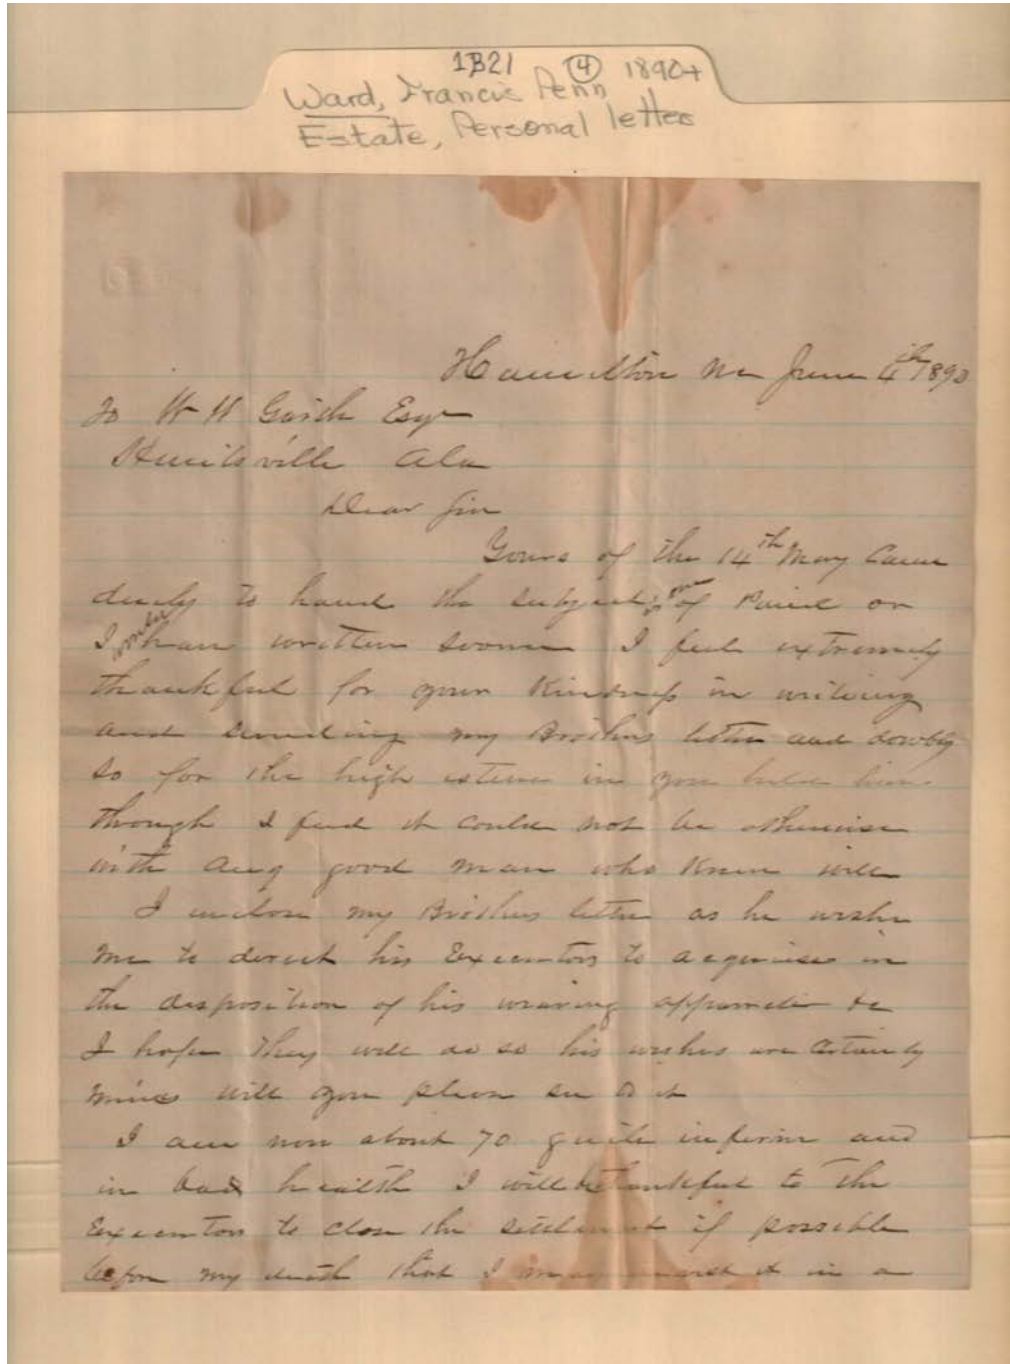 1B21 (4) 1890+
Ward, Francis Penn
Estate, Personal letters
Hamilton June 4th 1890
To W W Esqr
Huntsville Ala
Dear Sir
Yours of the 14th May came
duely to hand the subject of or
I would have written sooner I feel extremely
thankful for your Kindness in writing
and sending my Brothers letter and
so for the high esteem in you held him
through I feel it could not be otherwise
with any good man who Knew well
I inclose my Brothers letter as he wishe
me to derect his Executors to in
the desposition of his wearing &c
I hope they will do so his wishes are certainly
mines will you please see to it
I am now about 70 quite infirm and
in bad health I will be thankful to the
Executors to close the if possible
before my death that I may it in a